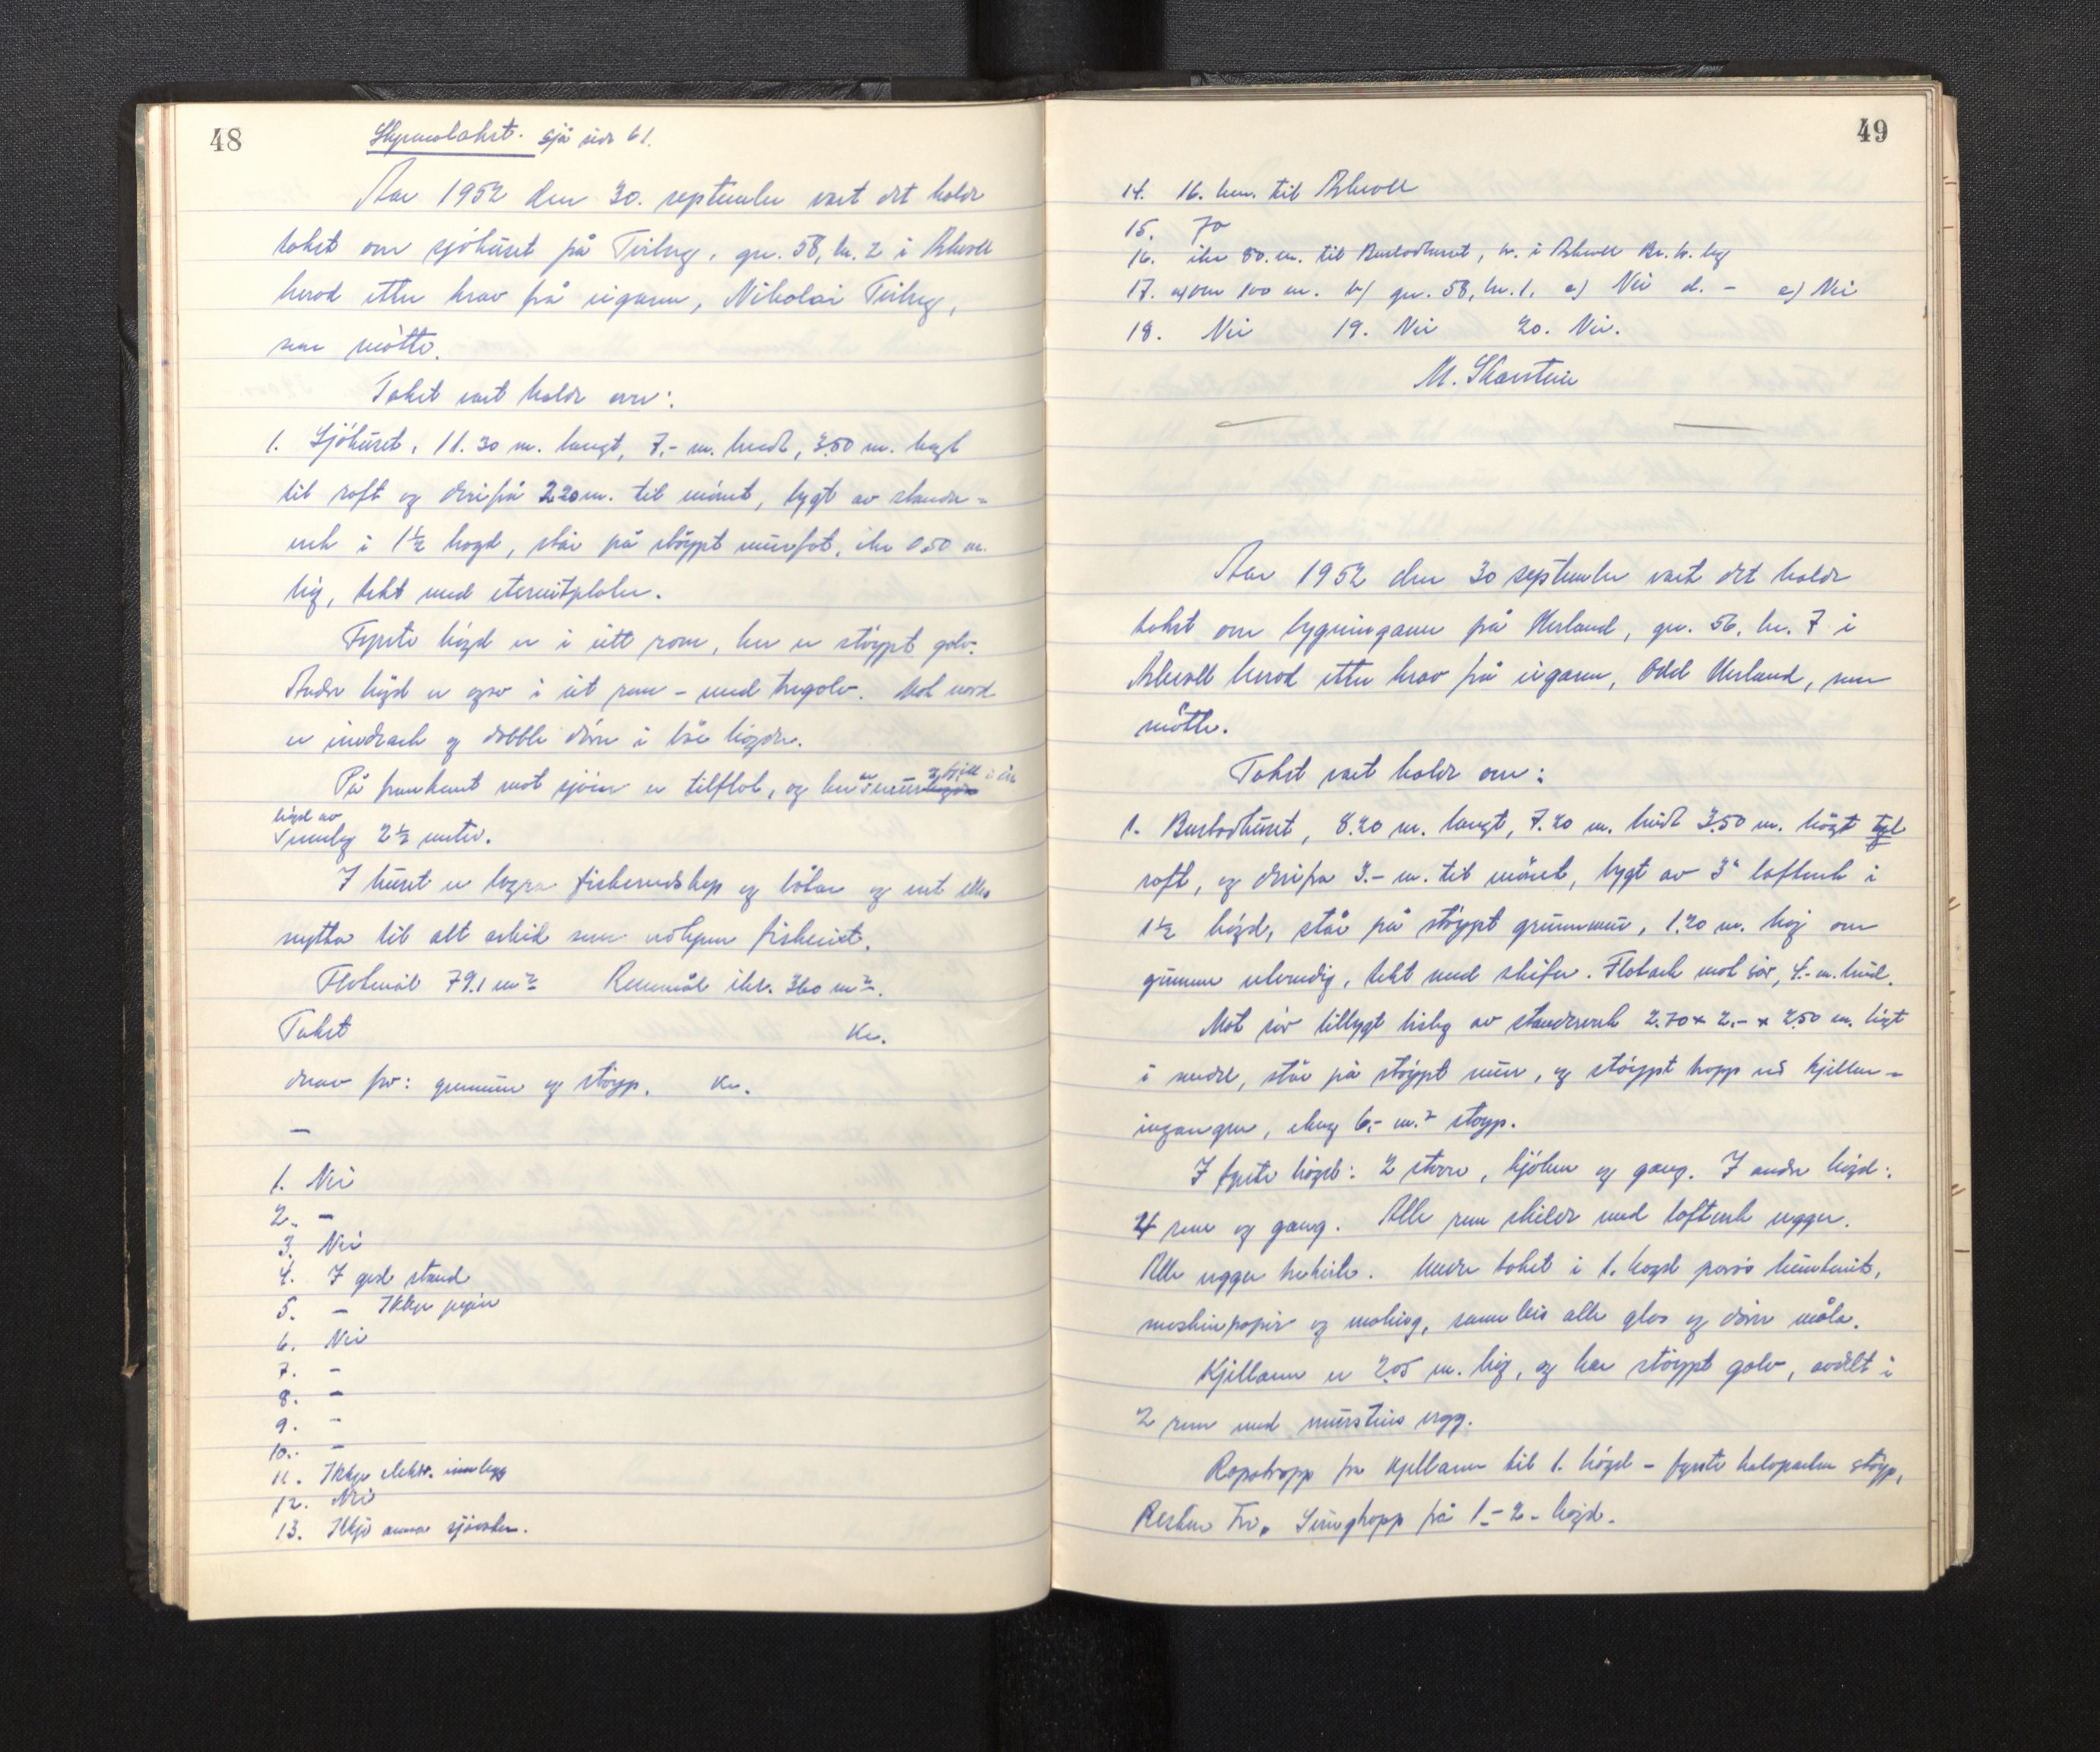 48
Skjønnstakst. sjå side 61.
Aar 1952 den 30. september vart det halde
takst over sjøhuset på Teileg, gnr. 58, br. 2 i Askvoll
herad etter krav frå eigaren, Nikolai Teileg,
som møtte.
Takst vart halde over:
1. Sjøhuset, 11.30 m. langt, 7,- m. breidt, 3.50 m. høgt
til raft og derifrå 2.20 m. til mønet, bygt av stander-
verk i 1½ høgd, står på støypt murfot, ikr 0.50 m.
høg, tekt med eternitplater.
Fyrste høgd er i eitt rom, her er støypt golv.
Andre høgd er ogso i eit rom - med tregolv. Mot nord
er inndrach og dobble dører i båe høgder.
På framkant mot sjøen er tilflot, og her er mur
høgd av
umleg 2½ meter.
I huset er lagra fiskereidskap og båtar og vert elles
nytta til alt arbeid som vedkjem fiskeriet.
Flatemål 79.1 m² Rommål ikr. 360 m³.
Takst Kr.
derav for: grunnmur og støyp. Kr.
—
1. Nei
2. -
3. Nei
4. I god stand
5. - Ikkje pipe
6. Nei
7. -
8. -
9. -
10. -
11. Ikkje elektr. innlegg
12. Nei
13. Ikkje annan
49
14. 16. km. til Askvoll
15. Jo
16. ikr 80. m. til Bustadhuset, v. i Askvoll Br. tr. lag
17. a) over 100 m. b) gnr. 58, br. 1. c) Nei d. - e) Nei
18. Nei 19. Nei 20. Nei.
M. Skarstein
Aar 1952 den 30 september vart det halde
takst over bygningane på Herland, gnr. 56, br. 7 i
Askvoll herad etter krav frå eigaren, Odd Herland, som
møtte.
Takst vart halde over:
1. Bustadhuset, 8.20 m. langt, 7.20 m. breidt 3.50 m. høgt til
raft, og derifra 3.- m. til mønet, bygt av 3" lafteverk i
1½ høgd, står på støypt grunnmur, 1.20 m. høg over
grunnen utvendig, tekt med skifer. Flatach mot sør, 4.- m. breid.
Mot sør tilbygt bislag av standerverk 2.70 x 2.- x 2.50 m. høgt
i medel, står på støypt mur, og støypt trapp ved kjellar-
ingangen, ikring 6,- m.² støyp.
I fyrste høgd: 2 stover, kjøken og gang. I andre høgd:
4 rom og gang. Alle rom skilde med lafteverk vegger.
Alle vegger trekvite. Under taket i 1. høgd porøs huntonit,
maskinpapir og maling, sameleis alle glas og dører måla.
Kjellaren er 2.05 m. høg, og har støypt golv, avdelt i
2 rom med murstein vegg.
Rapatrapp fra kjellaren til 1. høgd - fyrste halvparten støyp,
Resten tre. Svingtrapp frå 1.-2.- høgd.